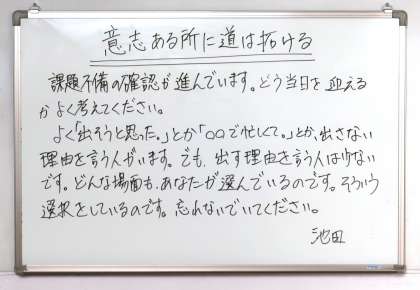 意志ある所に道は拓ける
課題不備の確認が進んでいます。どう当日を迎える
かよく考えてください。
よく「出そうと思った。」とか「○○で忙しくて。」とか、出さない
理由を言う人がいます。でも、出す理由を言う人は少ない
です。どんな場面も、あなたが選んでいるのです。そういう
選択をしているのです。忘れないでいてください。
池田